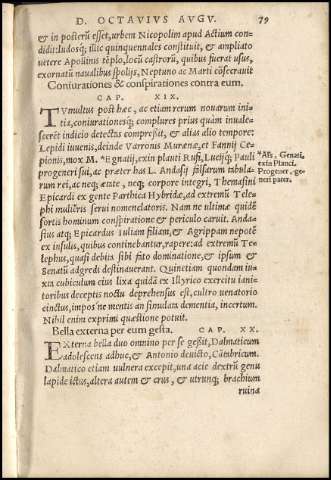 D. OCTAVIVS AVGV. 79
& in posterũ esset, urbem Nicopolim apud Actium con-
didit: ludosq; illic quinquennales constituit, & ampliato
uetere Apolinis tẽplo, locũ castrorũ, quibus fuerat usus,
exornatũ naualibus spolijs, Neptuno ac Marti cõsecrauit
Coniurationes & conspirationes contra eum.
CAP. XIX.
TVmultus post hæc, ac etiam rerum nouarum ini-
tia, coniurationesq; complures prius quàm inuale-
scerẽt indicio detectas compressit, & alias alio tempore:
Lepidi iuuenis, deinde Varronis Murenæ, et Fannij Cæ-
pionis, mox M. *Egnatij, exin plauti Rufi, Lucijq; Pauli
progeneri sui, ac præter has L. Andasij falsarum tabula-
rum rei, ac neq; ætate, neq; corpore integri, Themasini
Epicardi ex gente Parthica Hybridæ, ad extremũ Tele-
phi mulieris serui nomenclatoris. Nam ne ultimæ quidẽ
sortis hominum conspiratione & periculo caruit. Anda-
sius atq; Epicardus Iuliam filiam, & Agrippam nepotẽ
ex insulis, quibus continebantur, rapere: ad extremũ Te-
lephus, quasi debita sibi fato dominatione, & ipsum &
Senatũ adgredi destinauerant. Quinetiam quondam iu-
xta cubiculum eius lixa quidã ex Illyrico exercitu iani-
toribus deceptis noctu deprehensus est, cultro uenatorio
cinctus, impos ne mentis an simulata dementia, incertum.
Nihil enim exprimi quæstione potuit.
*Ass, Genati,
exin Planci.
Progener, ge-
neri pater.
Bella externa per eum gesta. CAP. XX.
EXterna bella duo omnino per se gessit, Dalmaticum
adolescens adhuc, & Antonio deuicto, Cãtabricum.
Dalmatico etiam uulnera excepit, una acie dextrũ genu
lapide ictus, altera autem & crus, & utrunq; brachium
ruina